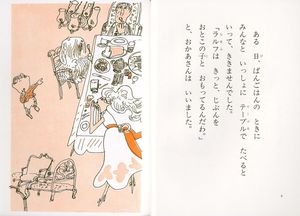 ある 日、ばんごはんの ときに
みんなと いっしょに テーブルで たべると
いって、ききませんでした。
「ラルフは きっと、じぶんを
おとこの子と おもってるんだわ。」
と、おかあさんは いいました。